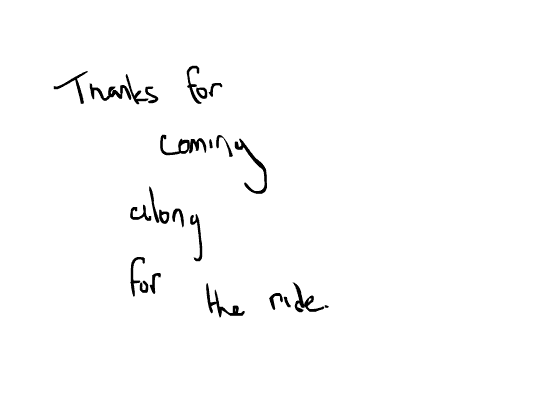 Thanks for
coming
along
for the ride.